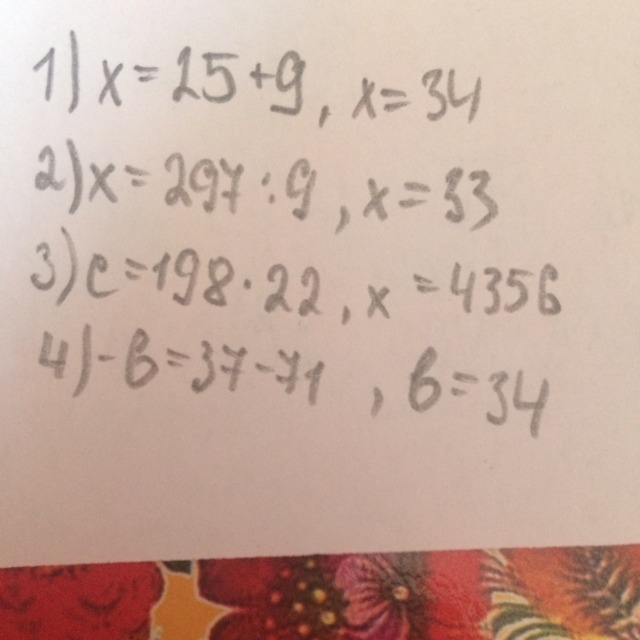 1) x=25+9, x=34
2) x=297:9, x=33
3) c=198·22, x=4356
4) -в=37-71, в=34